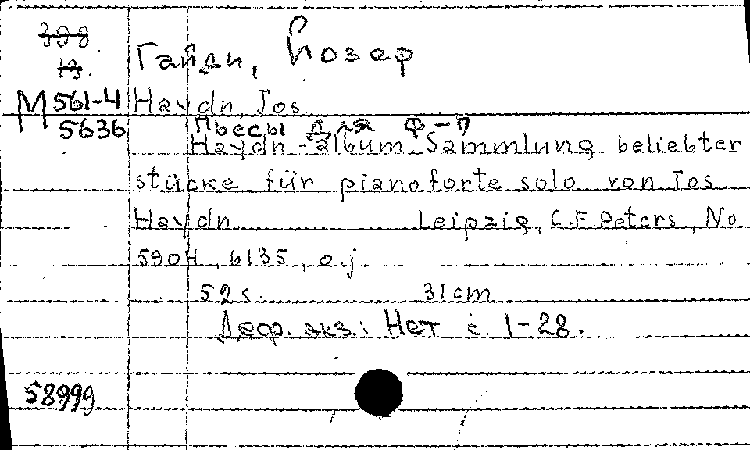 398
13.
Гайдн, Иозеф
М 561-4 Haydn, Jos.
5636 Пьесы для ф-п
Haydn-album. Sammlung beliebter
stücke für pianoforte solo von Jos
Haydn Leipzig, C.F. Peters, No
5904, 6135, o.j.
52 s. 31 cm
Деф. экз: Нет с 1-28.
58999